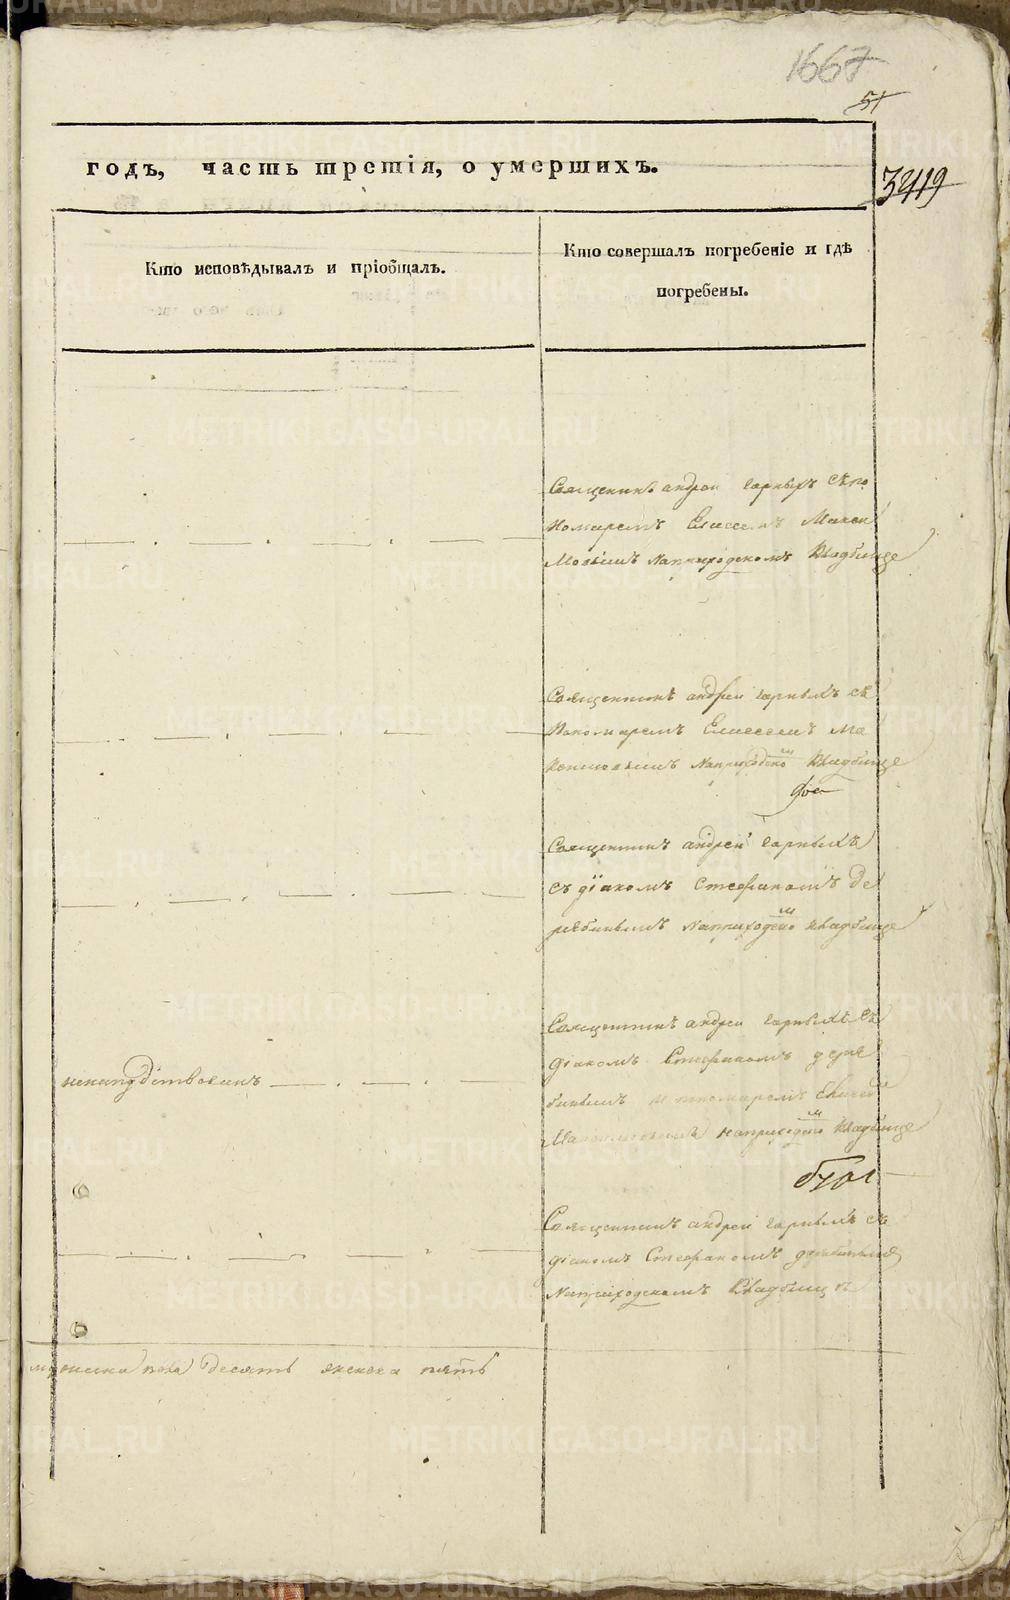 1667
51
3419
годъ, часть третія, о умершихъ.
Кто исповѣдывалъ и пріобщалъ.
Кто совершалъ погребеніе и гдѣ
погребены.
Священикъ андреи Горныхъ съ по
номаремъ Елисеемъ Макси
мовымъ наприходскомъ Кладбище
Священикъ андреи Горныхъ съ
пономаремъ Елисеемъ Ма
ксимовымъ наприходско м Кладбище
Священикъ андрей Горныхъ
съ діакомъ Стефаномъ де
рябинымъ наприходско м кладбище
Священикъ андреи Горныхъ съ
діакомъ Стефаномъ деря
бинымъ и пономаремъ Елисее
Максимовымъ наприходско м Кладбище
Священикъ андрей Горныхъ съ
діакомъ Стефаномъ дерябинымъ
Наприходскомъ Кладбищѣ
мужеска пола десять женска пять